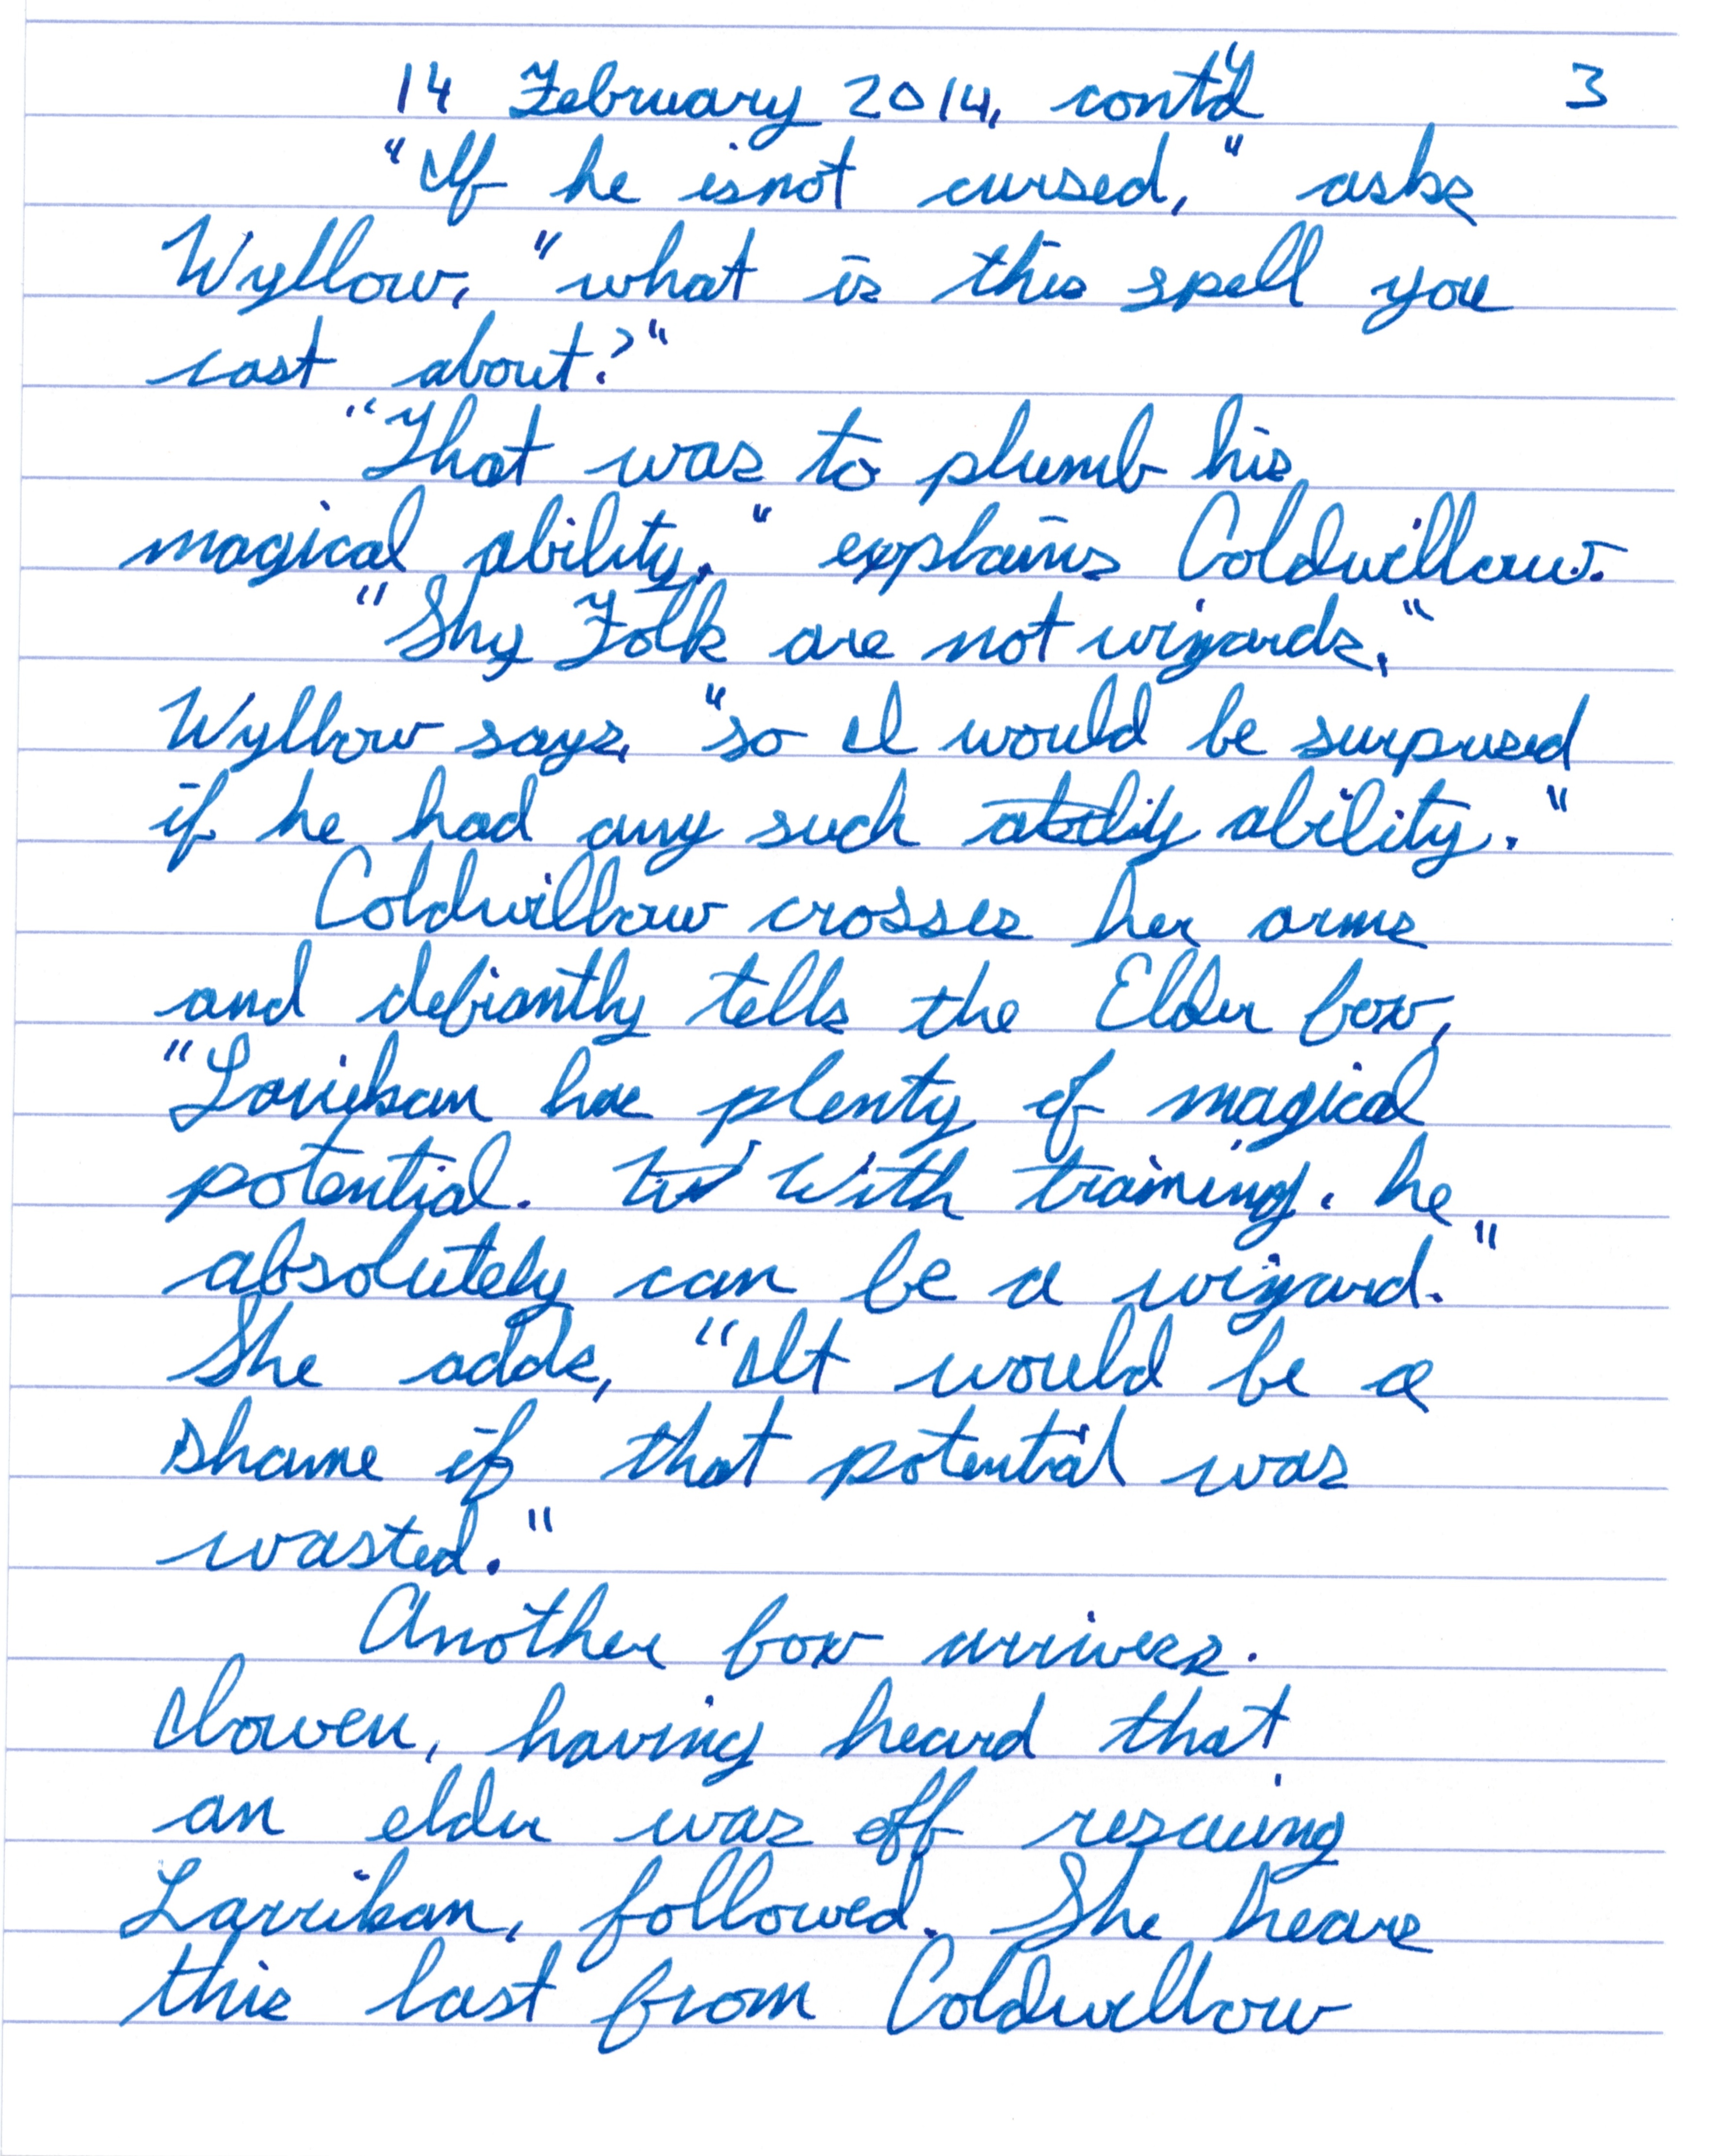 14 February 2014, cont'd 3
"If he is not cursed," asks
Wyllow, "what is this spell you
cast about?"
"That was to plumb his
magical ability," explains Coldwillow.
"Shy Folk are not wizards,"
Wyllow says, "so I would be surprised
if he had any such ability."
Coldwillow crosses her arms
and defiantly tells the Elder fox,
"Larrikan has plenty of magical
potential. With training, he
absolutely can be a wizard."
She adds, "It would be a
shame if that potential was
wasted."
Another fox arrives.
Iowen, having heard that
an elder was off rescuing
Larrikan, followed. She hears
this last from Coldwillow